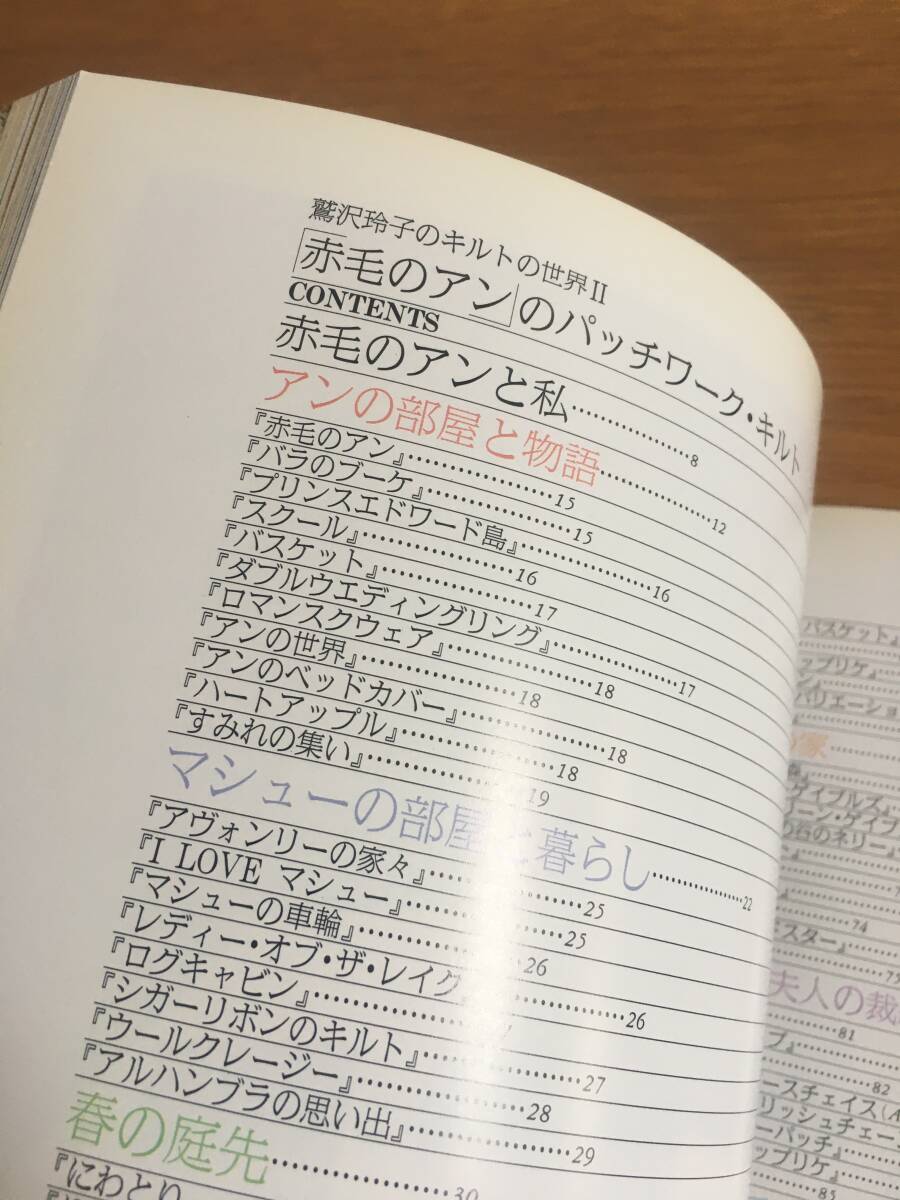 鷲沢玲子のキルトの世界II
「赤毛のアン」のパッチワーク・キルト
CONTENTS
赤毛のアンと私……………8
アンの部屋と物語……………12
『赤毛のアン』……………15
『バラのブーケ』……………15
『プリンスエドワード島』……………16
『スクール』……………16
『バスケット』……………17
『ダブルウエディングリング』……………17
『ロマンスクウェア』……………18
『アンの世界』……………18
『アンのベッドカバー』……………18
『ハートアップル』……………18
『すみれの集い』……………19
マシューの部屋と暮らし……………22
『アヴォンリーの家々』……………25
『I LOVE マシュー』……………25
『マシューの車輪』……………26
『レディー・オブ・ザ・レイク』……………26
『ログキャビン』……………
『シガーリボンのキルト』……………27
『ウールクレージー』……………28
『アルハンブラの思い出』……………29
春の庭先……………30
『にわとり
バスケット』
ップリケ』
バリエーショ
の家
ゲイブルス
ーン・ゲイブ
の谷のネリー
74
スター』
夫人の裁
81
82
ースチェイス(A
リッシュチェー
ーパッチ』
ップリケ』
85